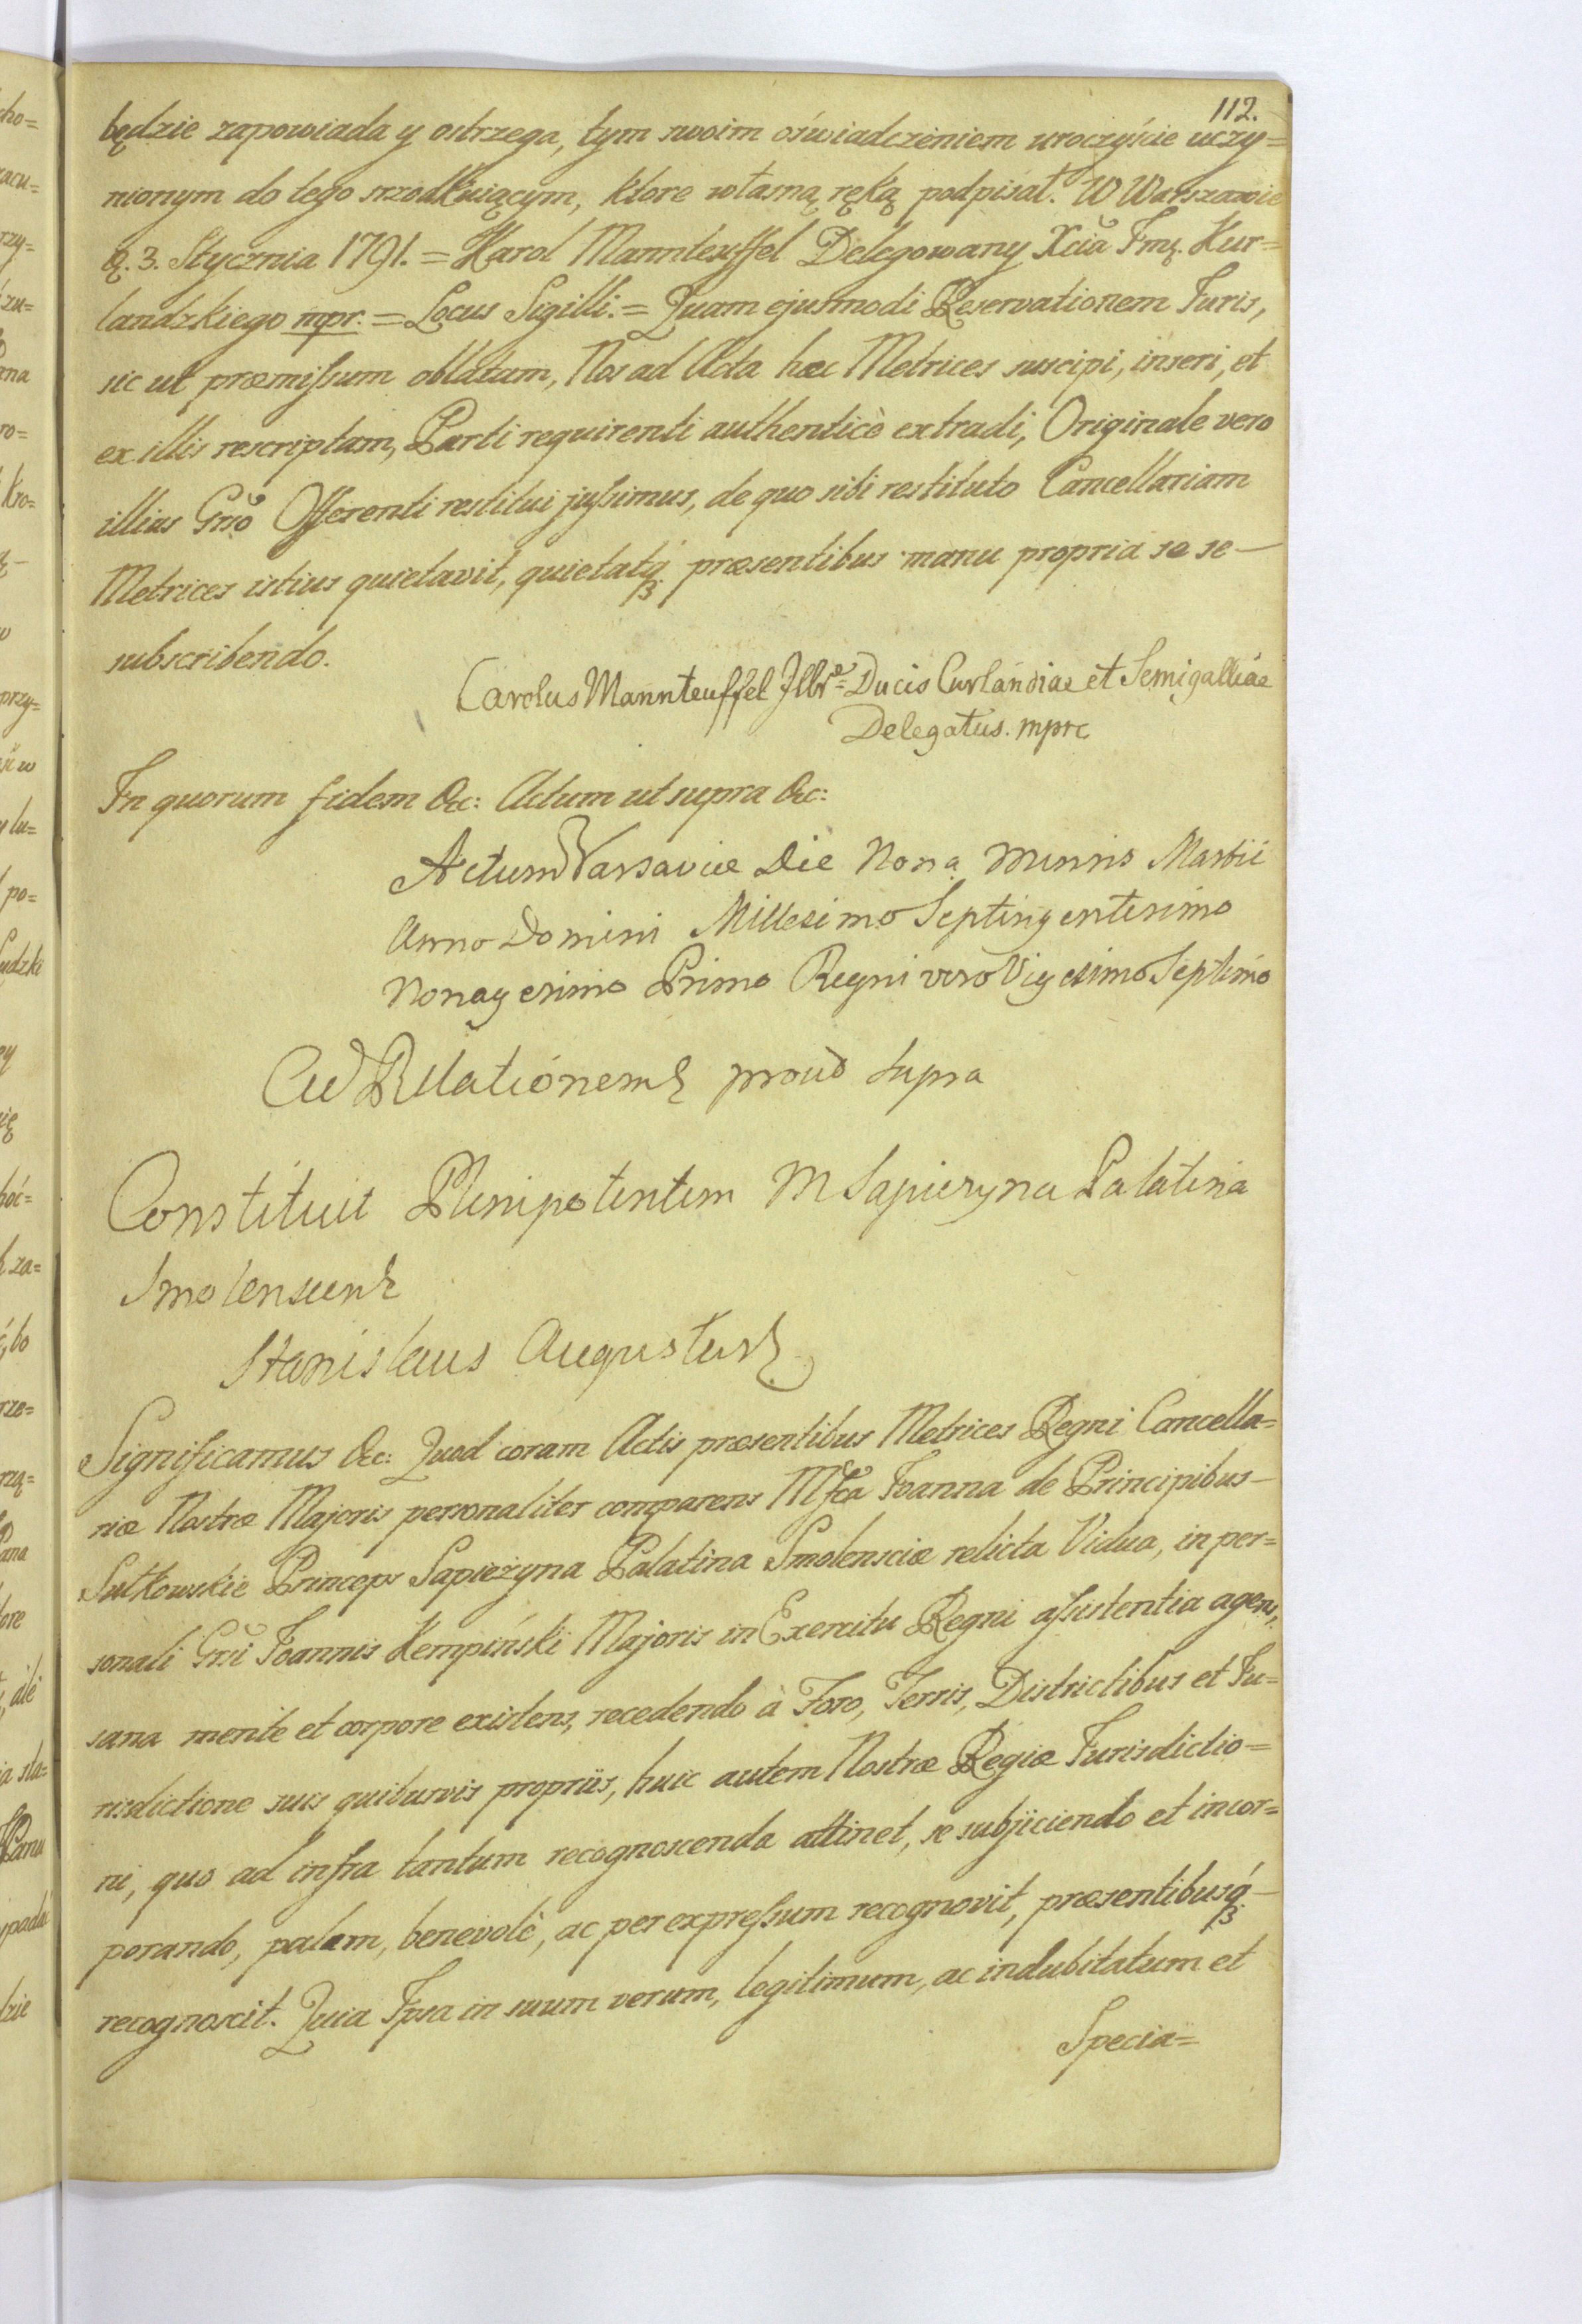 112.
będzie zapowiada y ostrzega, tym swoim oświadczeniem uroczyście uczy=
nionym do tego srzodkuiącym, ktore własną ręką podpisał. W Warszawie
d. 3. Stycznia 1791. = Karol Mannteuffel Delegowany Xcia Jmę. Kur=
landzkiego mpr. = Locus Sigilli. = Quam ejusmodi Reservationem Juris,
sic ut præmissum oblatam, Nos ad Acta hæc Metrices suscipi, inseri, et
ex illis rescriptam, Parti requirenti authenticè extradi, Originale vero
illius Grso Offerenti restitui jussimus, de quo sibi restituto Cancellariam
Metrices istius quietavit, quietatq3 præsentibus manu propria se se—
subscribendo.
Carolus Mannteuffel Illris Ducis Curlandiae et Semigalliae
Delegatus. mpr
In quorum fidem &c: Actum ut supra &c:
Actum Varsaviæ Die Nona Mensis Martii
Anno Domini Millesimo Septingentesimo
Nonagesimo Primo Regni vero Vigesimo Septimo
Ad Relationem prout supra
Constituit Plenipotentem M Sapiezyna Palatina
Smolenscens
Stanislaus Augustus
Significamus &c: Quod coram Actis præsentibus Metrices Regni Cancella=
riæ Nostræ Majoris personaliter comparens Mfca Joanna de Principibus—
Sułkowskie Princeps Sapieżyna Palatina Smolensciæ relicta Vidua, in per=
sonali Grsi Joannis Kempiński Majoris in Exercitu Regni assistentia agens,
sana mente et corpore existens, recedendo à Foro, Terris, Districtibus et Ju=
risdictione suis quibusvis propriis, huic autem Nostræ Regiæ Jurisdictio=
ni, quo ad infra tantum recognoscenda attinet, se subjiciendo et incor=
porando, palam, benevolè, ac per expressum recognovit, præsentibusq3—
recognoscit. Quia Ipsa in suum verum, legitimum, ac indubitatum et
Specia=